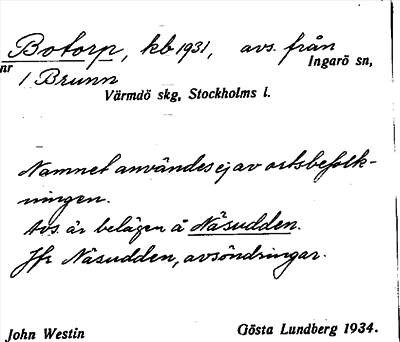 Botorp, kb 1931, avs. från
nr 1 Brunn
Ingarö sn,
Värmdö skg, Stockholms l.
Namnet användes ej av ortsbefolk-
ningen.
Avs. är belägen å Näsudden.
Jfr Näsudden, avsöndringar.
John Westin
Gösta Lundberg 1934.